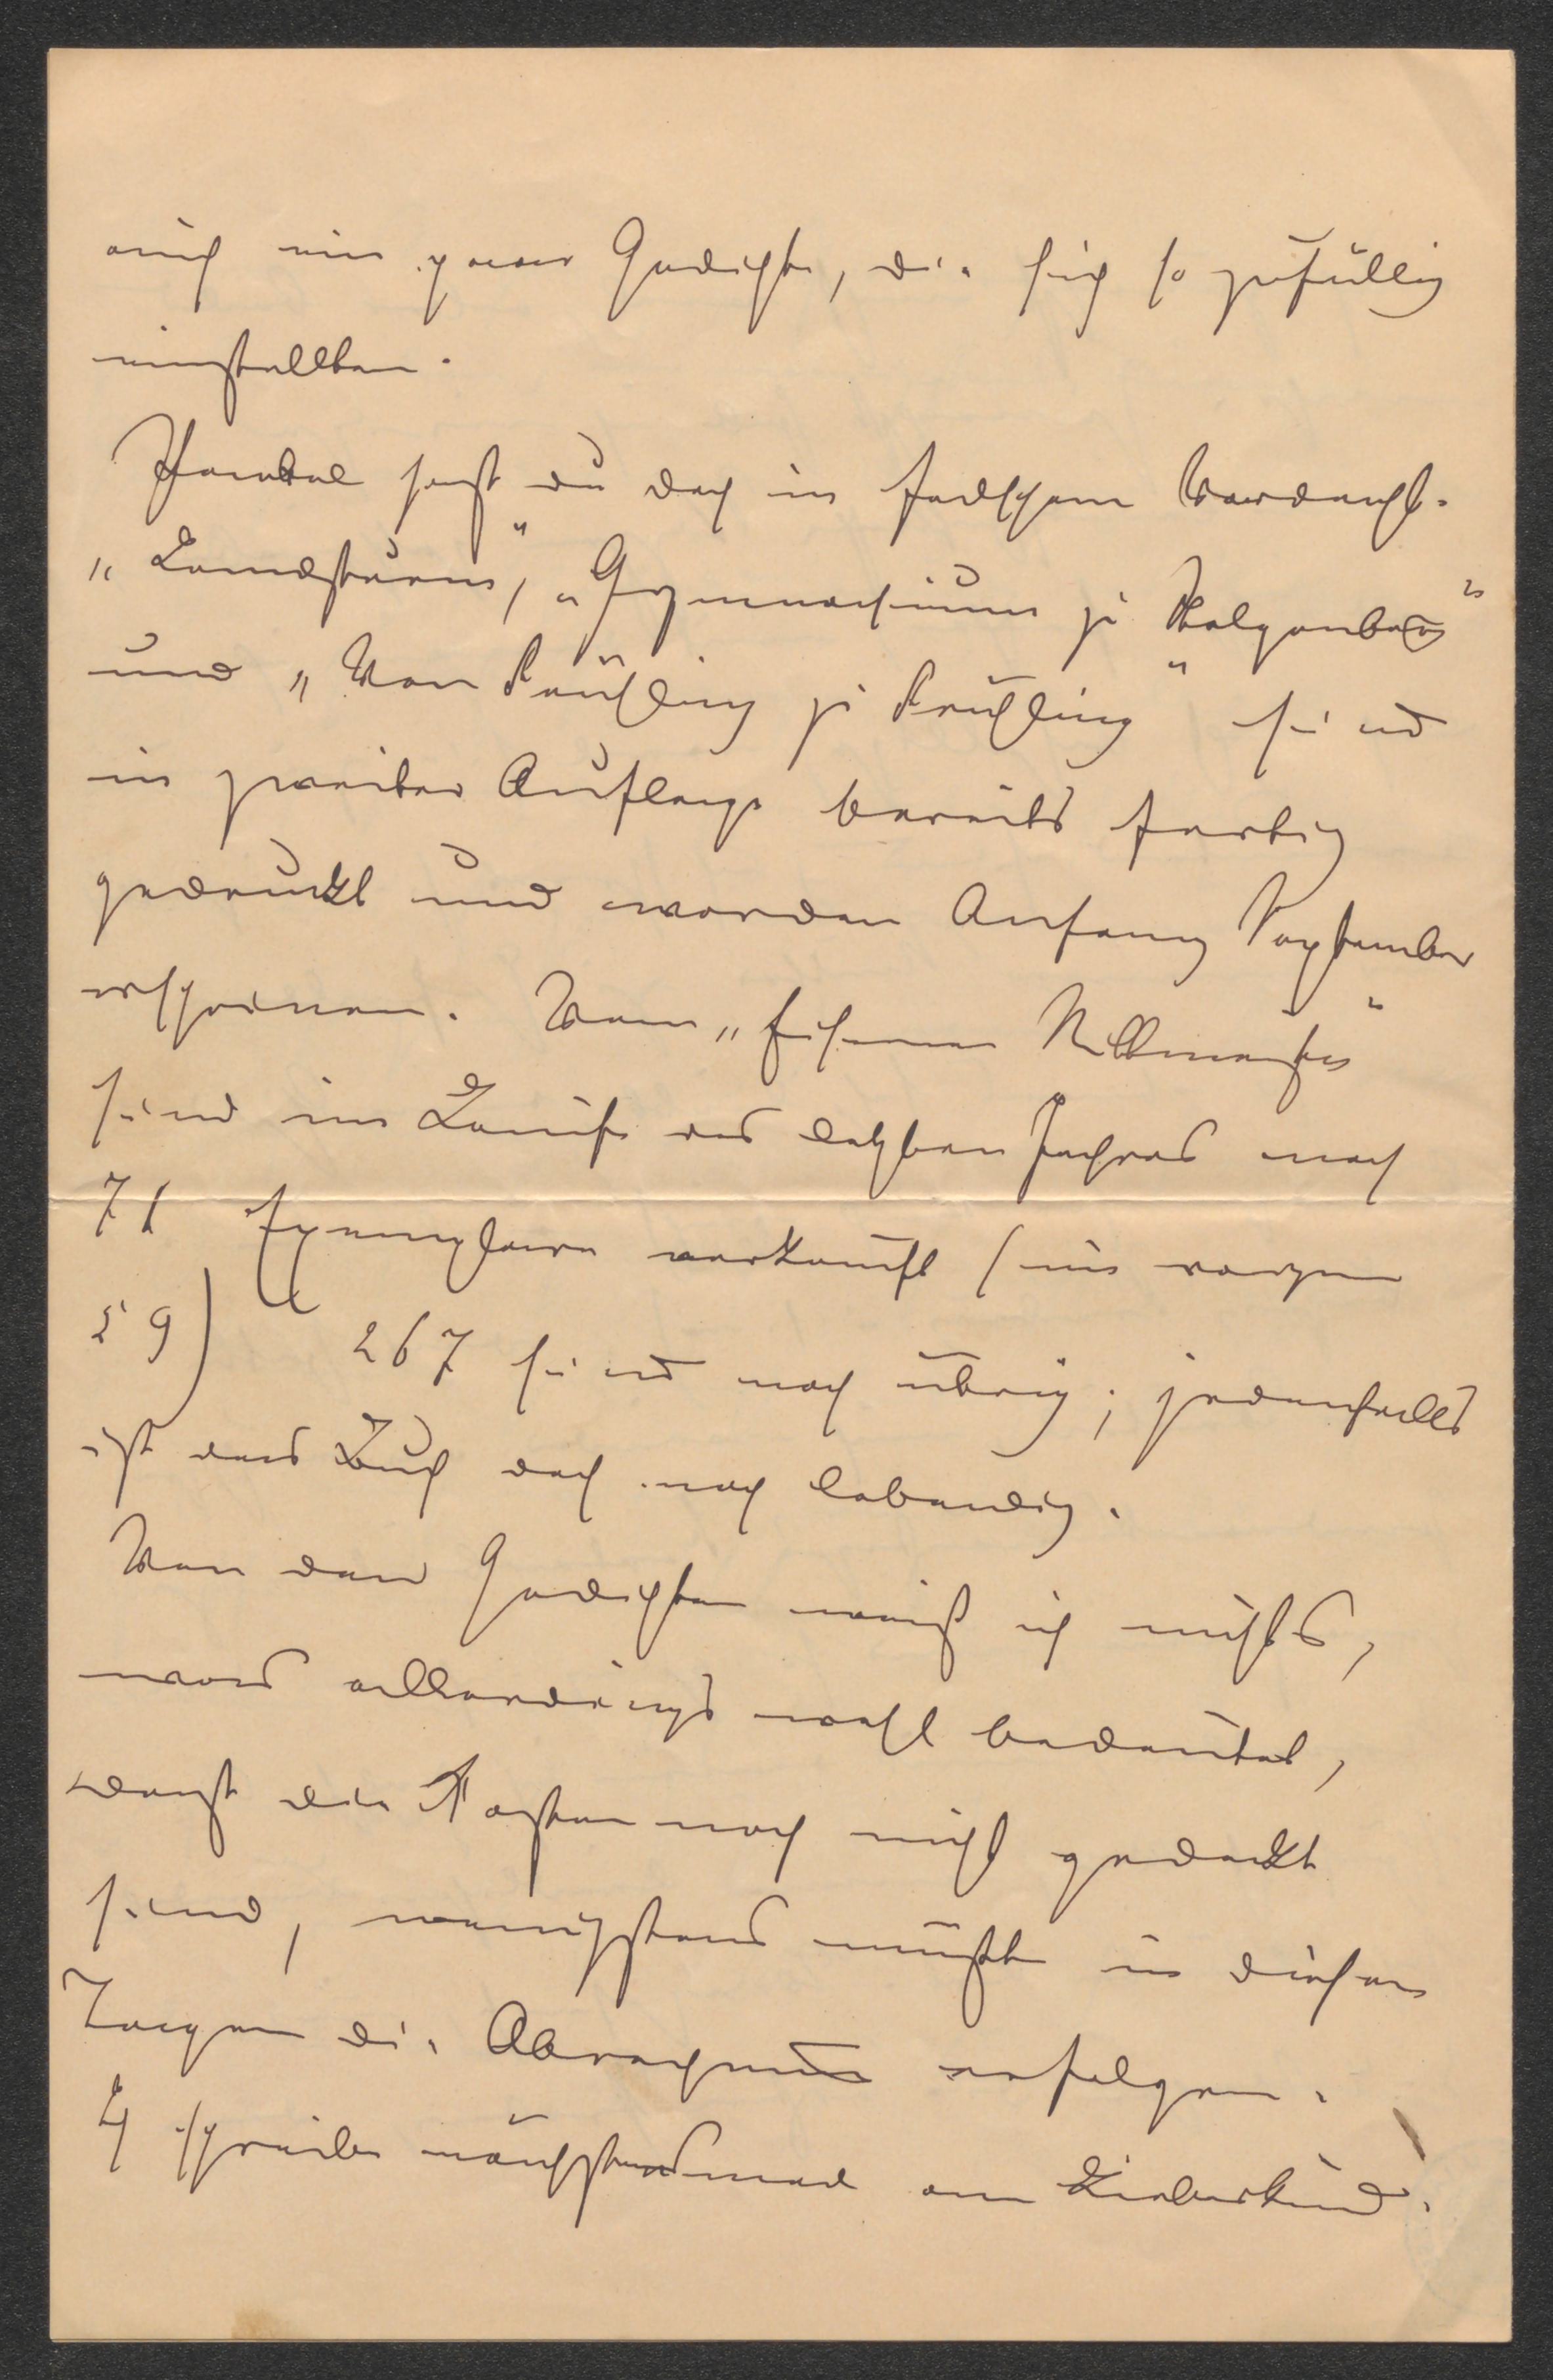 auch ein paar Gedichte, die sich so zufällig
einstellten.
Haeckel hast du doch in falschem Verdacht.
„Landsturm“, „Gymnasium zu Stolpenburg“
und „Von Frühling zu Frühling“ sind
in zweiter Auflage bereits fertig
gedruckt und werden Anfang September
erscheinen. Vom „Eisernen Rittmeister“
sind im Laufe des letzten Jahres noch
71 Exemplare verkauft (im vorigen
59) 267 sind noch übrig; jedenfalls
ist das Buch doch noch lebendig.
Von den Gedichten weiß ich nichts,
was allerdings wohl bedeutet,
daß die Kosten noch nicht gedeckt
sind, wenigstens müßte in diesen
Tagen die Abrechnung erfolgen.
Ich schreibe nächstens mal an Liebeskind.